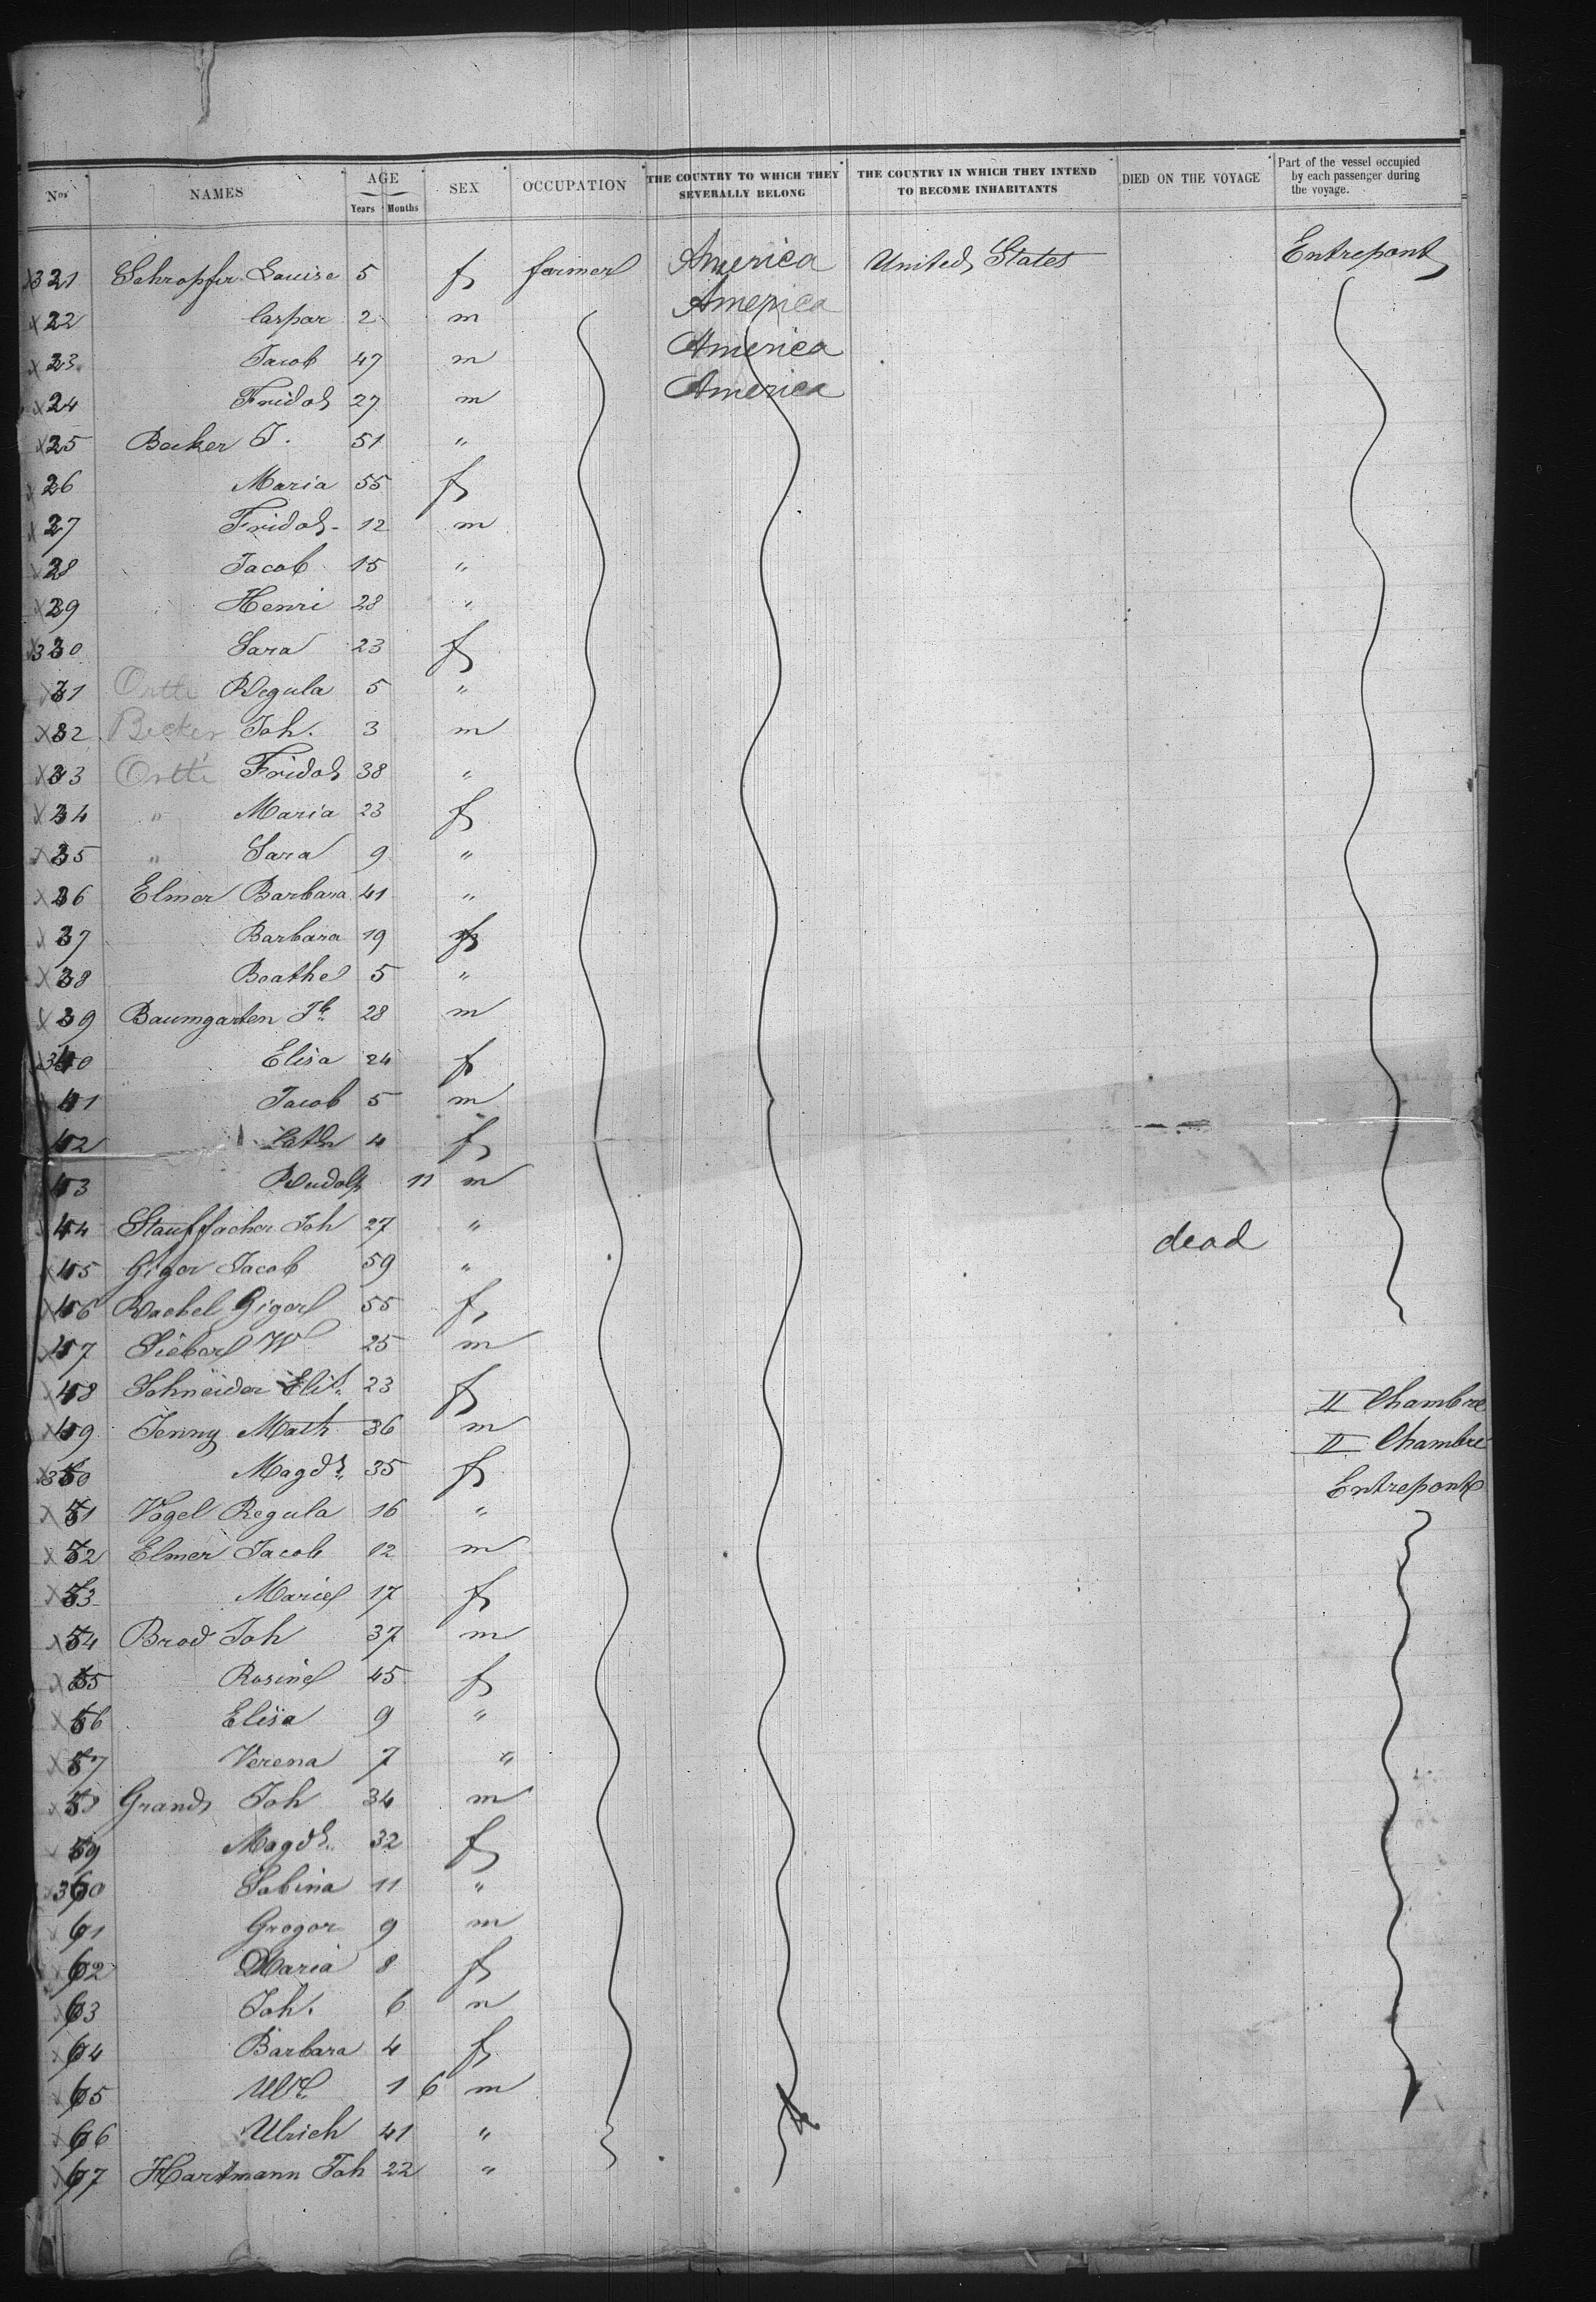 Nos NAMES AGE Years Months SEX OCCUPATION THE COUNTRY TO WHICH THEY SEVERALLY BELONG THE COUNTRY IN WHICH THEY INTEND TO BECOME INHABITANTS DIED ON THE VOYAGE Part of the vessel occupied by each passenger during the voyage.
321 Schropfer Louise 5 f farmer America United States Entrepont
22 Caspar 2 m America
23 Jacob 47 m America
24 Fridol 27 m America
25 Becker J. 51 "
26 Maria 55 f
27 Fridol 12 m
28 Jacob 15 "
29 Henri 28 "
330 Sara 23 f
31 Ortli Regula 5 "
32 Becker Joh. 3 m
33 Ortli Fridol 38 "
34 " Maria 23 f
35 " Sara 9 "
36 Elmer Barbara 41 "
37 Barbara 19 f
38 Beathe 5 "
39 Baumgarten Jb 28 m
340 Elisa 24 f
41 Jacob 5 m
42 Cath 4 f
43 Rudolf 11 m
44 Stauffacher Joh 27 " dead
45 Giger Jacob 59 "
46 Rachel Giger 55 f
47 Sieber W 25 m
48 Schneider Elis. 23 f II Chambre
49 Jenny Math 36 m II Chambre
350 Magd. 35 f Entrepont
51 Vogel Regula 16 "
52 Elmer Jacob 12 m
53 Marie 17 f
54 Brod Joh 37 m
55 Rosine 45 f
56 Elisa 9 "
57 Verena 7 "
58 Grand Joh 34 m
59 Magd. 32 f
360 Sabina 11 "
61 Gregor 9 m
62 Maria 8 f
63 Joh. 6 m
64 Barbara 4 f
65 Ul. 1 6 m
66 Ulrich 41 "
67 Hartmann Joh 22 "